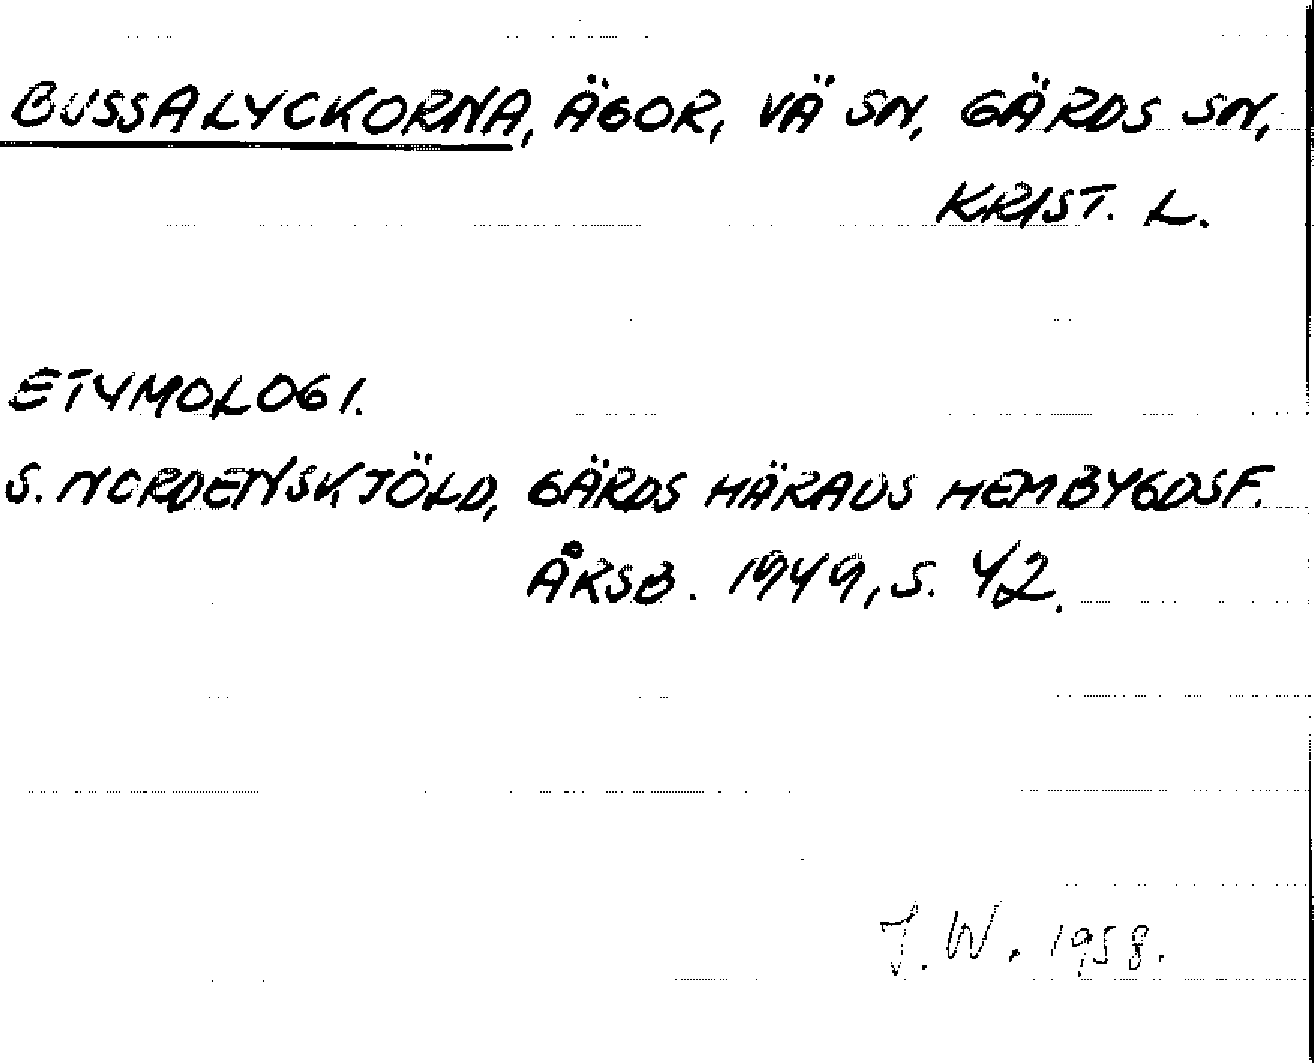 BUSSALYCKORNA, ÄGOR, VÄ SN, GÄRDS SN,
KRIST. L.
ETYMOLOGI.
S. NORDENSKJÖLD, GÄRDS HÄRADS HEMBYGDSF.
ÅRSB. 1949, S. 42.
J.W. 1958.